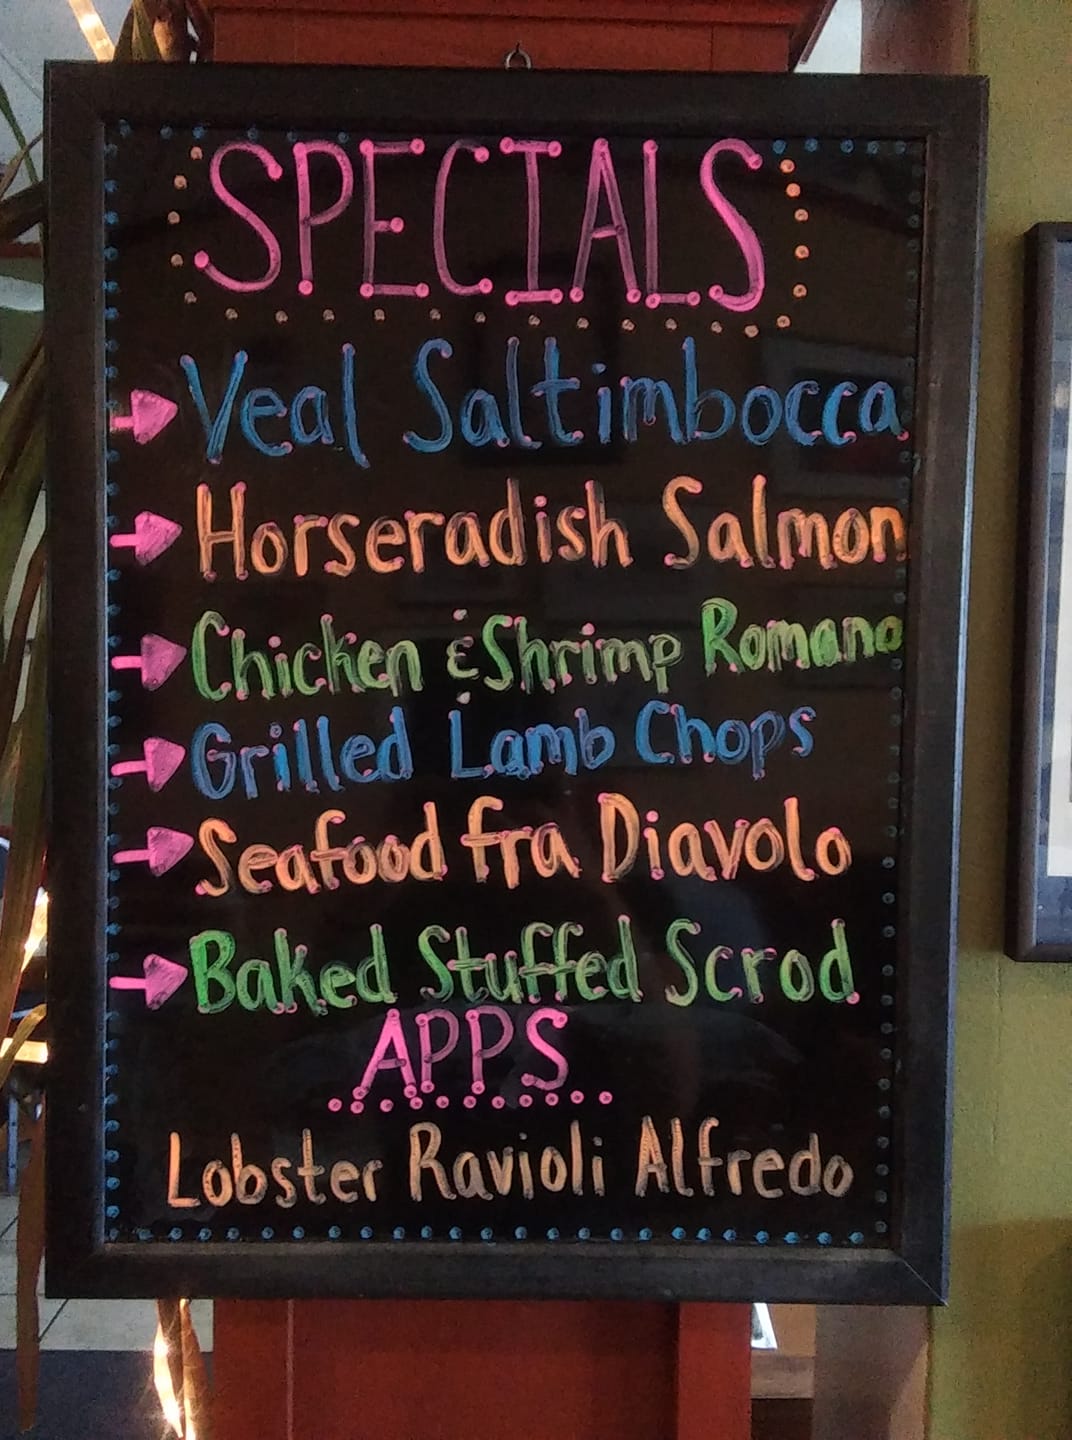 SPECIALS
Veal Saltimbocca
Horseradish Salmon
Chicken & Shrimp Romano
Grilled Lamb Chops
Seafood fra Diavolo
Baked Stuffed Scrod
APPS
Lobster Ravioli Alfredo